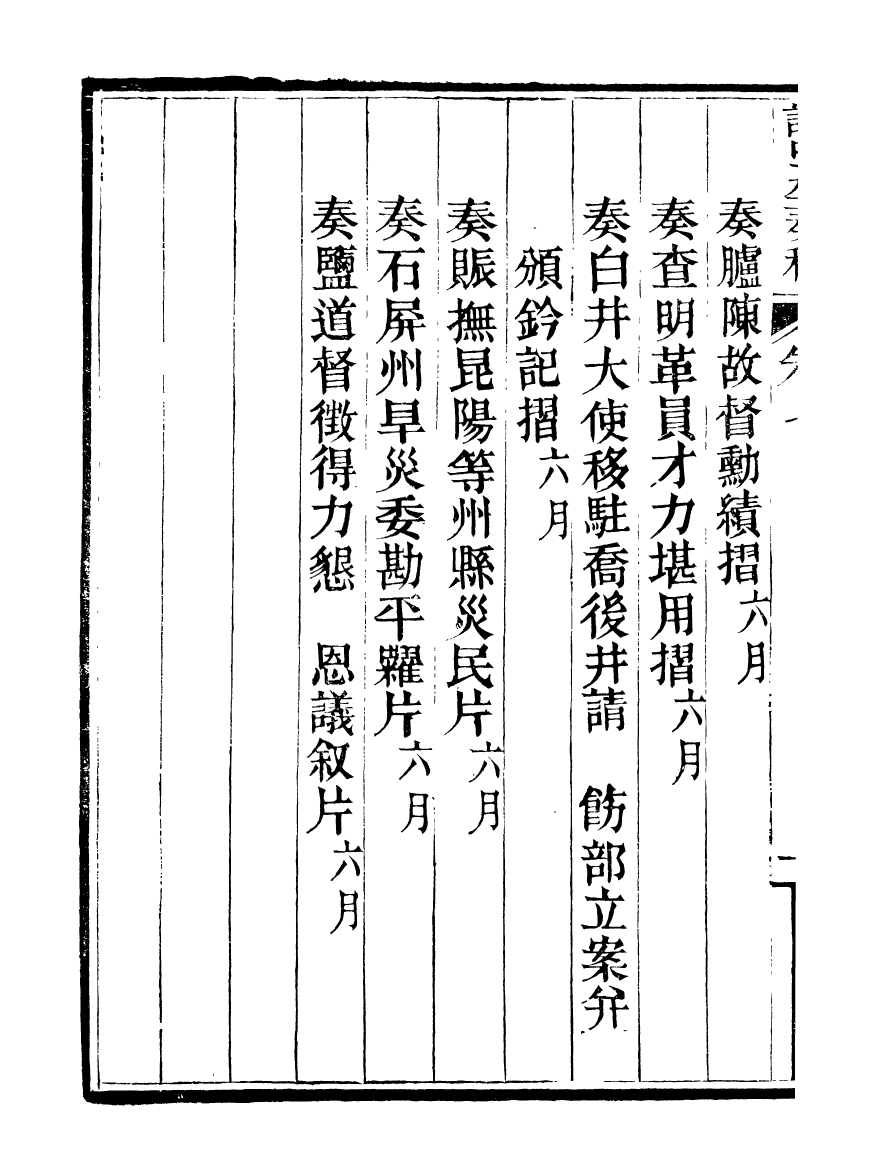 奏臚陳故督勳績摺六月
奏查明革員才力堪用摺六月
奏白井大使移駐喬後井請　飭部立案并
頒鈐記摺六月
奏賑撫昆陽等州縣災民片六月
奏石屏州旱災委勘平糶片六月
奏鹽道督徵得力懇　恩議叙片六月